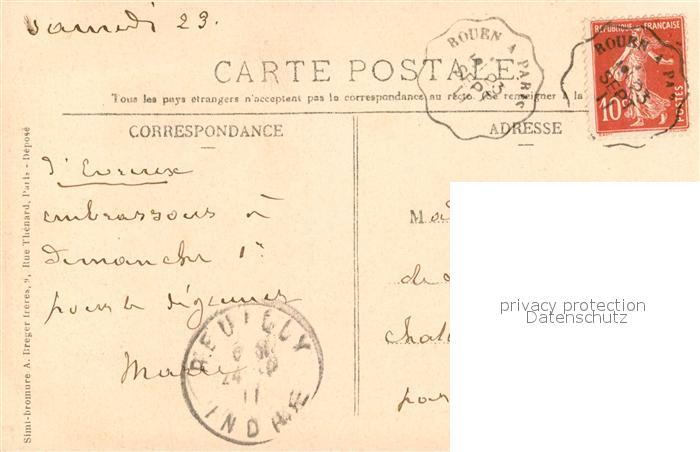 samedi 23.
CARTE POSTALE
Tous les pays étrangers n'acceptent pas la correspondance au recto. (Se renseigner à la
CORRESPONDANCE
ADRESSE
d'Evreux
embrassons à
dimanche 1er
pour le déjeuner
Marie
Simi-bromure A. Breger frères, 9, Rue Thénard, Paris - Déposé
ROUEN A PARIS
23
SEPT
11
RÉPUBLIQUE FRANÇAISE
POSTES
10
ROUEN A PA
23
SEPT
REUILLY
24
11
INDRE
de
par
privacy protection
Datenschutz